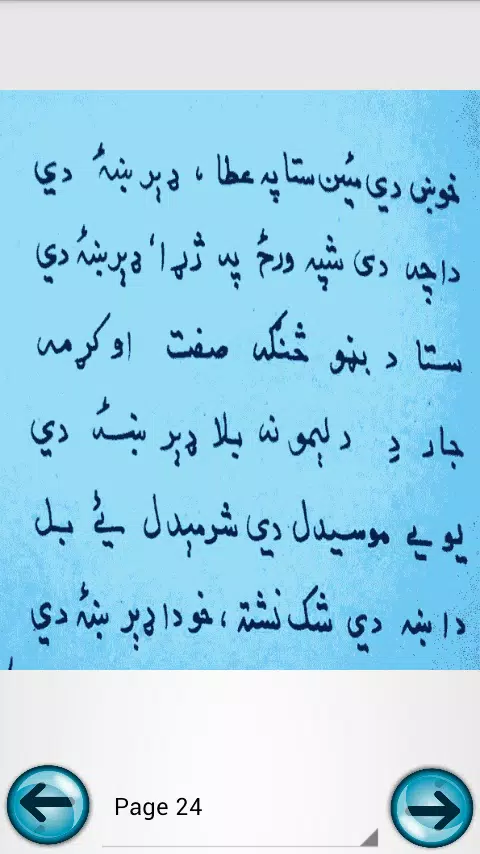 خوښ دي مېين ستا په عطا ، ډېر ښهٔ دي
داچه دی شپه ورځ په ژړا ، ډېر ښهٔ دي
ستا د بڼو څنګه صفت اوکړمه
جار دِ د لېمو نه بلا ډېر ښهٔ دي
يو يې موسيدل دي شرمېدل يې بل
دا ښه دي شک نشته ، خو دا ډېر ښهٔ دي
Page 24